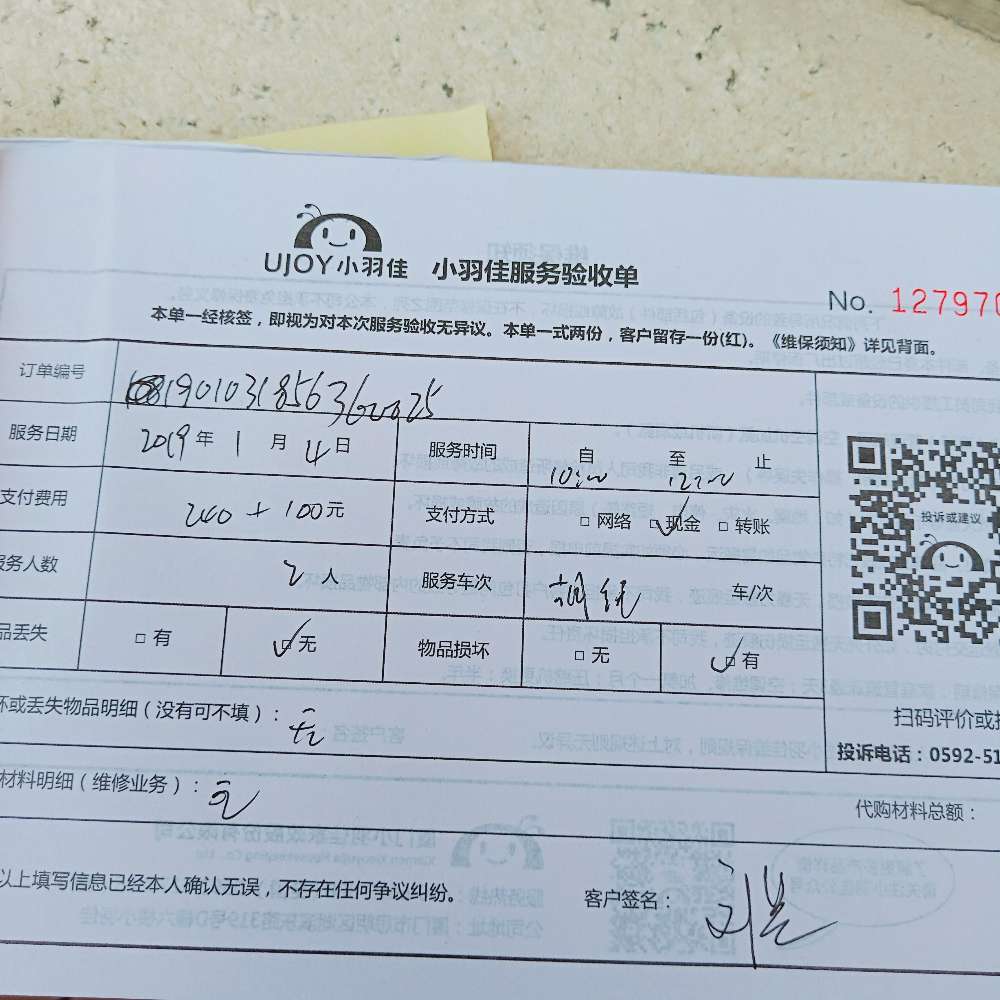 UJOY小羽佳 小羽佳服务验收单
No. 127970
本单一经核签，即视为对本次服务验收无异议。本单一式两份，客户留存一份(红)。《维保须知》详见背面。
订单编号
服务日期 2019年 1月 4日 服务时间 自 10:00 至 12:00 止
支付费用 200+100元 支付方式 □网络 ☑现金 □转账
服务人数 2人 服务车次 车/次
品丢失 □有 ☑无 物品损坏 □无 ☑有
投诉或建议
扫码评价或
坏或丢失物品明细（没有可不填）：无
投诉电话：0592-51
材料明细（维修业务）：无
代购材料总额：
以上填写信息已经本人确认无误，不存在任何争议纠纷。 客户签名：